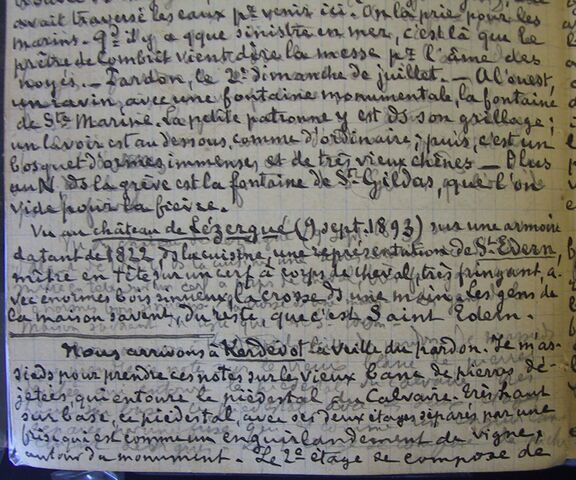 avait traversé les eaux pr venir ici. On la prie pour les
marins. Qd il y a qque sinistre en mer, c'est là que le
prêtre de Combrit vient dire la messe pr l'âme des
noyés. — Pardon, le 2e dimanche de juillet. — A l'ouest,
un ravin avec une fontaine monumentale, la fontaine
de Ste Marine. La petite patronne y est ds son grillage;
un lavoir est au dessous, comme d'ordinaire; puis, c'est un
bosquet d'ormes immenses et de très vieux chênes — Plus
au N. ds la grève est la fontaine de St-Gildas, que l'on
vide pour la fièvre.
Vu au château de Lézergué (9 sept. 1893) sur une armoire
datant de 1822, ds la cuisine, une représentation de St Edern,
mître en tête sur un cerf à corps de cheval, très fringant, a-
vec énormes bois sinueux, la crosse ds une main. Les gens de
la maison savent, du reste, que c'est Saint Edern.
Nous arrivons à Kerdévot la veille du pardon. Je m'as-
sieds pour prendre ces notes sur le vieux banc de pierres dé-
jetées qui entoure le piédestal du Calvaire. Très haut
sur base ce piédestal avec ses deux étages séparés par une
frise qui est comme un enguirlandement de vigne,
autour du monument. Le 2e étage se compose de